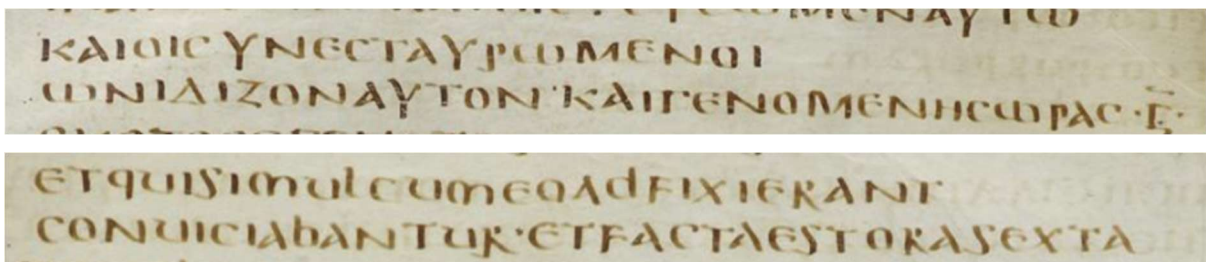 ΑΥΤΩ
ΚΑΙΟΙCΥΝΕCΤΑΥΡΩΜΕΝΟΙ
ΩΝΙΔΙΖΟΝΑΥΤΟΝ·ΚΑΙΓΕΝΟΜΕΝΗCΩΡΑC·Ϛ̅·
ETQUISIMULCUMEOADFIXIERANT
CONUICIABANTUR·ETFACTAESTORASEXTA